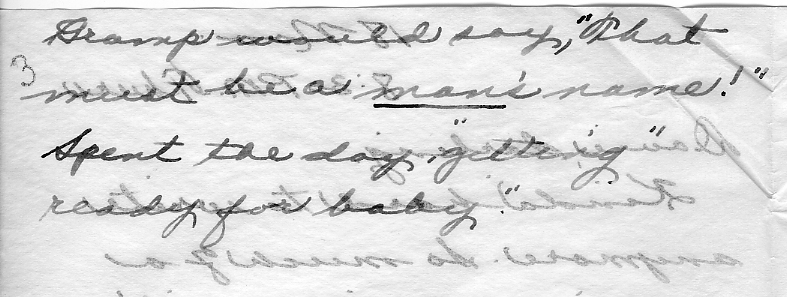 Gramp would say, "That
3
must be a man's name!"
Spent the day, "getting"
ready for baby."